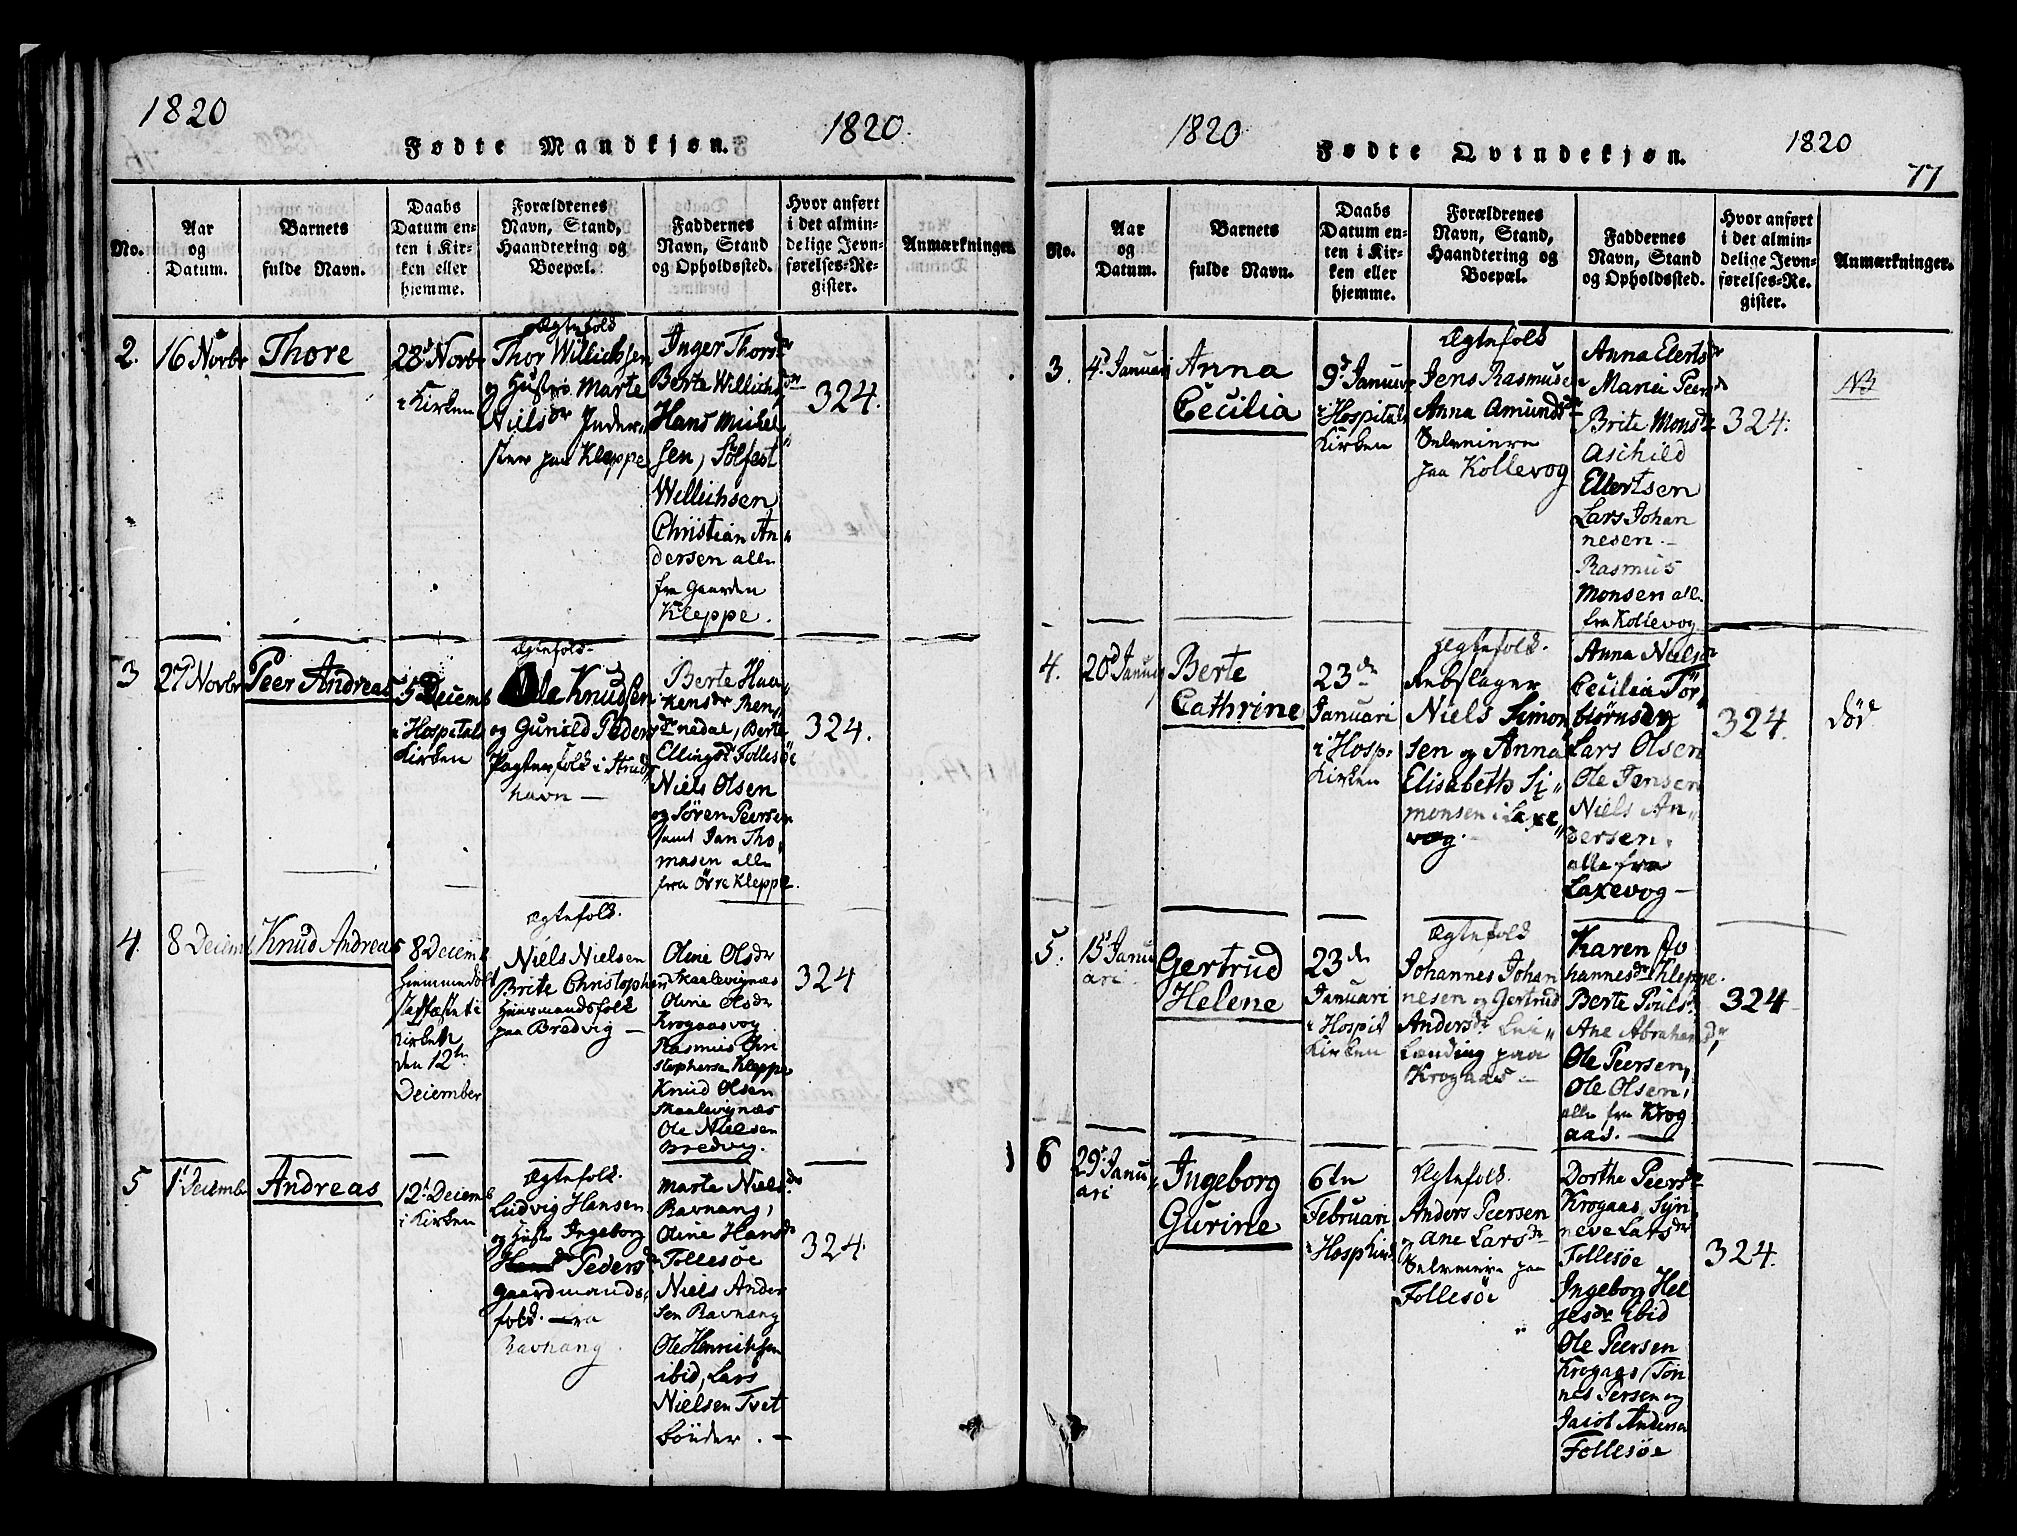 1820
Fødte Mandkjøn.
1820.
No.
Aar
og
Datum.
Barnets
fulde Navn.
Daabs
Datum en-
ten i Kir-
ken eller
hjemme.
Forældrenes
Navn, Stand,
Haandtering og
Boepæl.
Faddernes
Navn, Stand
og Opholdssted.
Hvor anført
i det almin-
delige Jevn-
førelses-Re-
gister.
Anmærkninger.
2.
16 Novbr
Thore
28d Novbr
i Kirken
Ægtefold
Thor Willichsen
og Hustro Marte
Nielsdr Inder„
ster paa Kleppe
Inger Thorsdr
Berte Willichsdr
Hans Mickel
sen, Solfest
Willichsen
Christian An„
dersen alle
fra Gaarden
Kleppe.
324.
3
27 Novbr
Peer Andreas
5 Deiemb
i Hospitals
Kirken
Ægtefold.
Ole Knudsen
og Gunild Peders
Pagterfolk i Strud„
havn —
Berte Haa„
kensdr Ren„
nedal, Berte
Ellingsdr Follesøe
Niels Olsen
og Sören Peersen
samt Jan Tho„
masen alle
fra Øvre Kleppe.
324.
4.
8 Deiemb
Knud Andreas
8 Deiemb
Hjemmedøbt
Stadfæstet i
Kirken
den 12te
Deiember
Ægtefold.
Niels Nielsen
Brite Christophersd
Huusmandsfolk
paa Bredvig —
Oline Olsdr
Skaalevignæs
Oline Olsdr
Krogaasvog
Rasmus Chri
stophersen Kleppe
Knud Olsen
Skaalevignæs
Ole Nielsen
Bredvig.
324
5
1d Deiembr
Andreas
12d Deiemb
i Kirken
Ægtefold.
Ludvig Hansen
og Hustr Ingeborg
Pedersdr
Gaardmands„
folk. fra
Ravnang.
Marte Nielsdr
Ravnang,
Oline Hansdr
Follesøe
Niels Ander
sen Ravnang
Ole Henrichsen
ibid, Lars
Nielsen Tvet
Bönder. —
324.
1820
Fødte Qvindekjøn.
1820
77
No.
Aar
og
Datum.
Barnets
fulde Navn.
Daabs
Datum en-
ten i Kir-
ken eller
hjemme.
Forældrenes
Navn, Stand,
Haandtering og
Boepæl.
Faddernes
Navn, Stand
og Opholdssted.
Hvor anført
i det almin-
delige Jevn-
førelses-Re-
gister.
Anmærkninger.
3.
4d Januari
Anna
Cecilia
9d Januar
i Hospitals
Kirken
Ægtefold
Jens Rasmusen
Anna Amundsdr
Selveiere
paa Kollevog
Anna Elertsdr
Maria Peersd
Brite Monsdr
Aschild
Ellertsen
Lars Johan
nesen. —
Rasmus
Monsen all.
fra Kollevog
324.
NB
4.
20d Januar
Berte
Cathrine
23de
Januari
i Hosp.
Kirken
Ægtefold.
Rebslager
Niels Simon
sen og Anna
Elisabeth Si„
monsen i Laxe„
vog.
Anna Nielsdr
Cecilia Tor„
biörnsen
Lars Olsen
Ole Jensen
Niels An„
dersen.
alle fra
Laxevog —
324.
død
5.
15d Janu
ari.
Gertrud
Helene
23de
Januari
i Hospit
Kirken
Ægtefold
Johannes Johan
nesen og Gertrud
Andersdr Lei„
lænding paa
Krogaas —
Karen Jo
hannesdr Kleppe.
Berte Poulsdr
Ane Abrahamsdr,
Ole Peersen,
Ole Olsen,
alle fra Krog
aas. —
324
6
29d Janu„
ari
Ingeborg
Gurine
6te
Februari
i Hosp Kirk
Ægtefold.
Anders Peersen
og Ane Larsdr
Selveiere paa
Follesöe
Dorthe Peersdr
Krogaas Syn„
neve Larsdr
Follesøe
Ingeborg Hel
jesdr ibid
Ole Peersen
Krogaas, Tön
nes Persen og
Jacob Andersen
Follesøe
324.